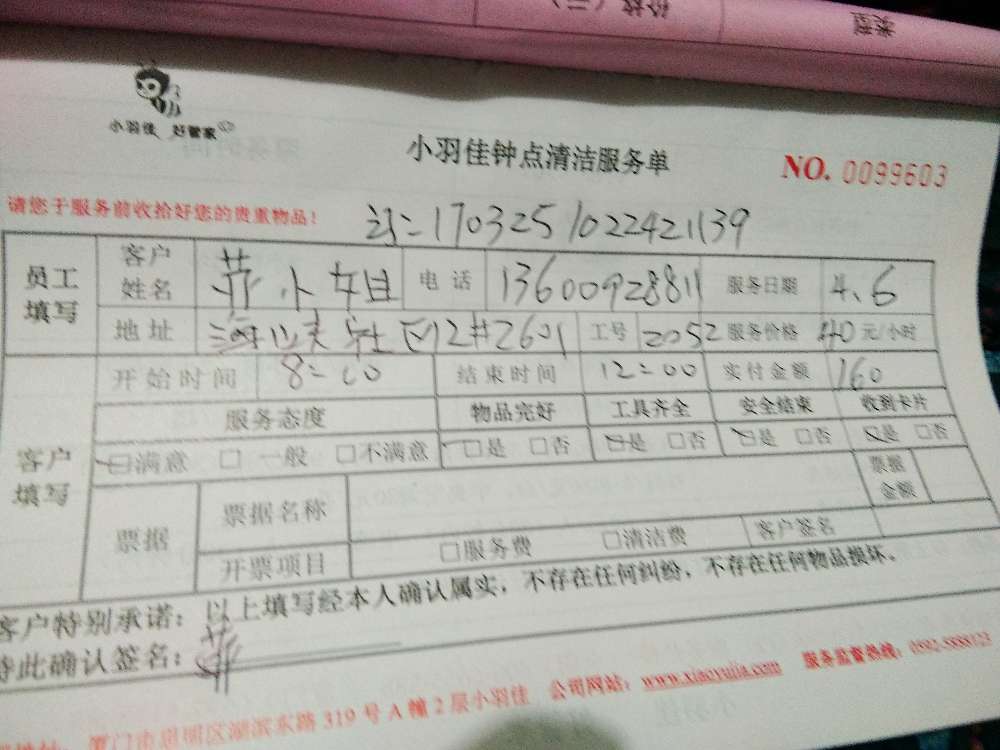 价格（元）
类型
小羽佳 好管家
小羽佳钟点清洁服务单
NO. 0099603
请您于服务前收拾好您的贵重物品！
订=1703251022421139
员工填写 客户姓名 小姐 电话 13600928811 服务日期 4.6
地址 海 社区12#2601 工号 2052 服务价格 40元/小时
客户填写 开始时间 8=00 结束时间 12=00 实付金额 160
服务态度 物品完好 工具齐全 安全结束 收到卡片
☑满意 □一般 □不满意 ☑是 □否 ☑是 □否 ☑是 □否 ☑是 □否
票据 票据名称 票据金额
开票项目 □服务费 □清洁费 客户签名
客户特别承诺：以上填写经本人确认属实，不存在任何纠纷，不存在任何物品损坏。
特此确认签名：
厦门市思明区湖滨东路319号A幢2层小羽佳 公司网站：www.xiaoyujia.com 服务监督热线：0592-5888123